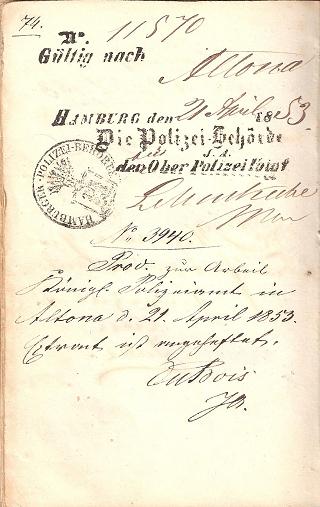 74.
No. 11570
Gültig nach
Altona
HAMBURG den 21 April 1853
Die Polizei-Behörde
den Ober Polizeivoigt
HAMBURGER POLIZEI-BEHÖRDE
No 3940.
Prod. zur Arbeit
Königl. Polizeiamt in
Altona d. 21. April 1853.
Extract ist angeheftet.